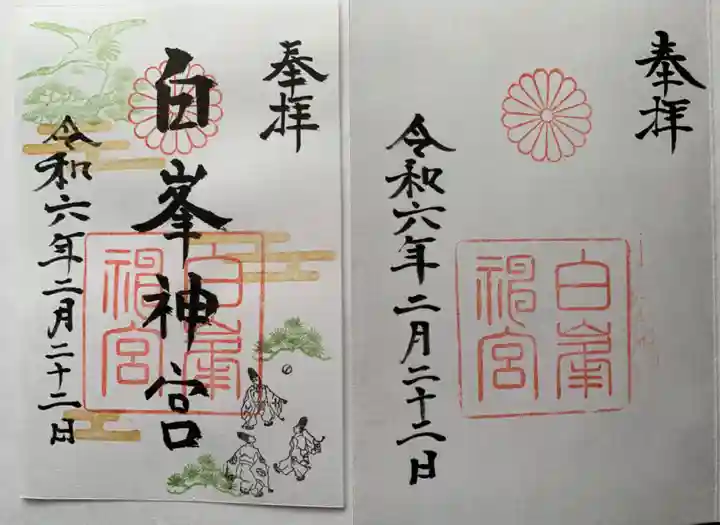 奉拝
白峯神宮
白峯
神宮
令和六年二月二十二日
奉拝
白峯
神宮
令和六年二月二十二日